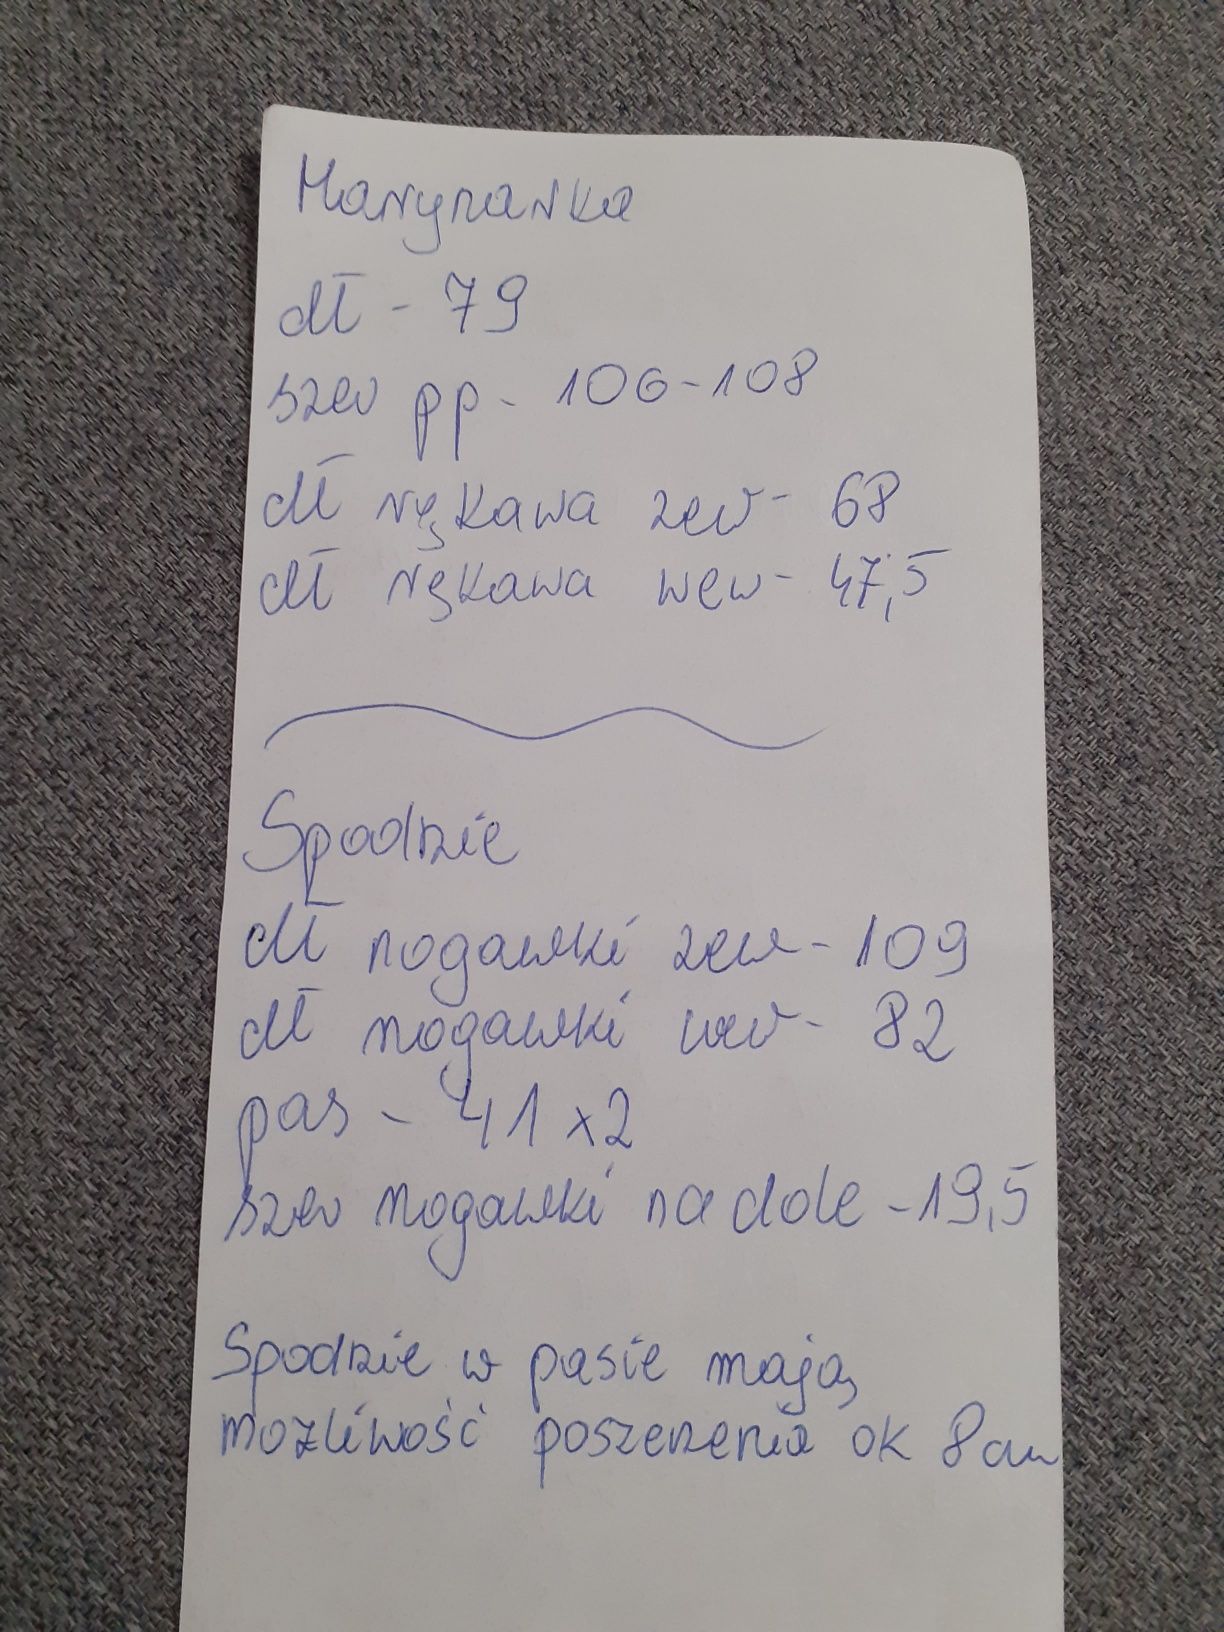 Marynarka
dł - 79
szer pp - 106-108
dł rękawa zew - 68
dł rękawa wew - 47,5
Spodnie
dł nogawki zew - 109
dł nogawki wew - 82
pas - 41 x2
szer nogawki na dole - 19,5
Spodnie w pasie mają
możliwość poszerzenia ok 8cm